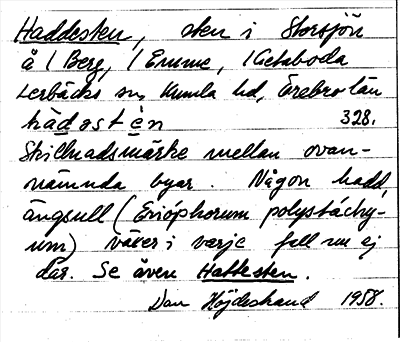 Haddesten, sten i Storsjön
å 1 Berg, 1 Emme, 1 Ketaboda
Lerbäcks sn, Kumla hd, Örebro län
hàdostèn 328.
Skillnadsmärke mellan ovan-
nämnda byar. Någon hadd,
ängsull (Erióphorum polystáchy-
um) växer i varje fall nu ej
där. Se även Hattesten.
Dan Höjdestrand 1958.